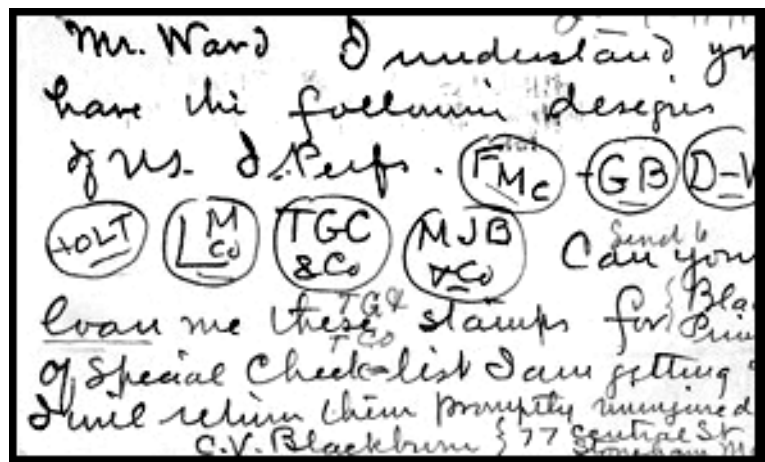 Mr. Ward I understand yo
have the following designs
of U.S. I. Perfs. FMC - GB D-W
HOLT LM Co TGC & Co MJB & Co Can you
Send 6
loan me these stamps for
TG&
T CO
of Special Check-list I am getting
I will return them promptly uninjured
C.V. Blackburn 77 Central St
Stoneham